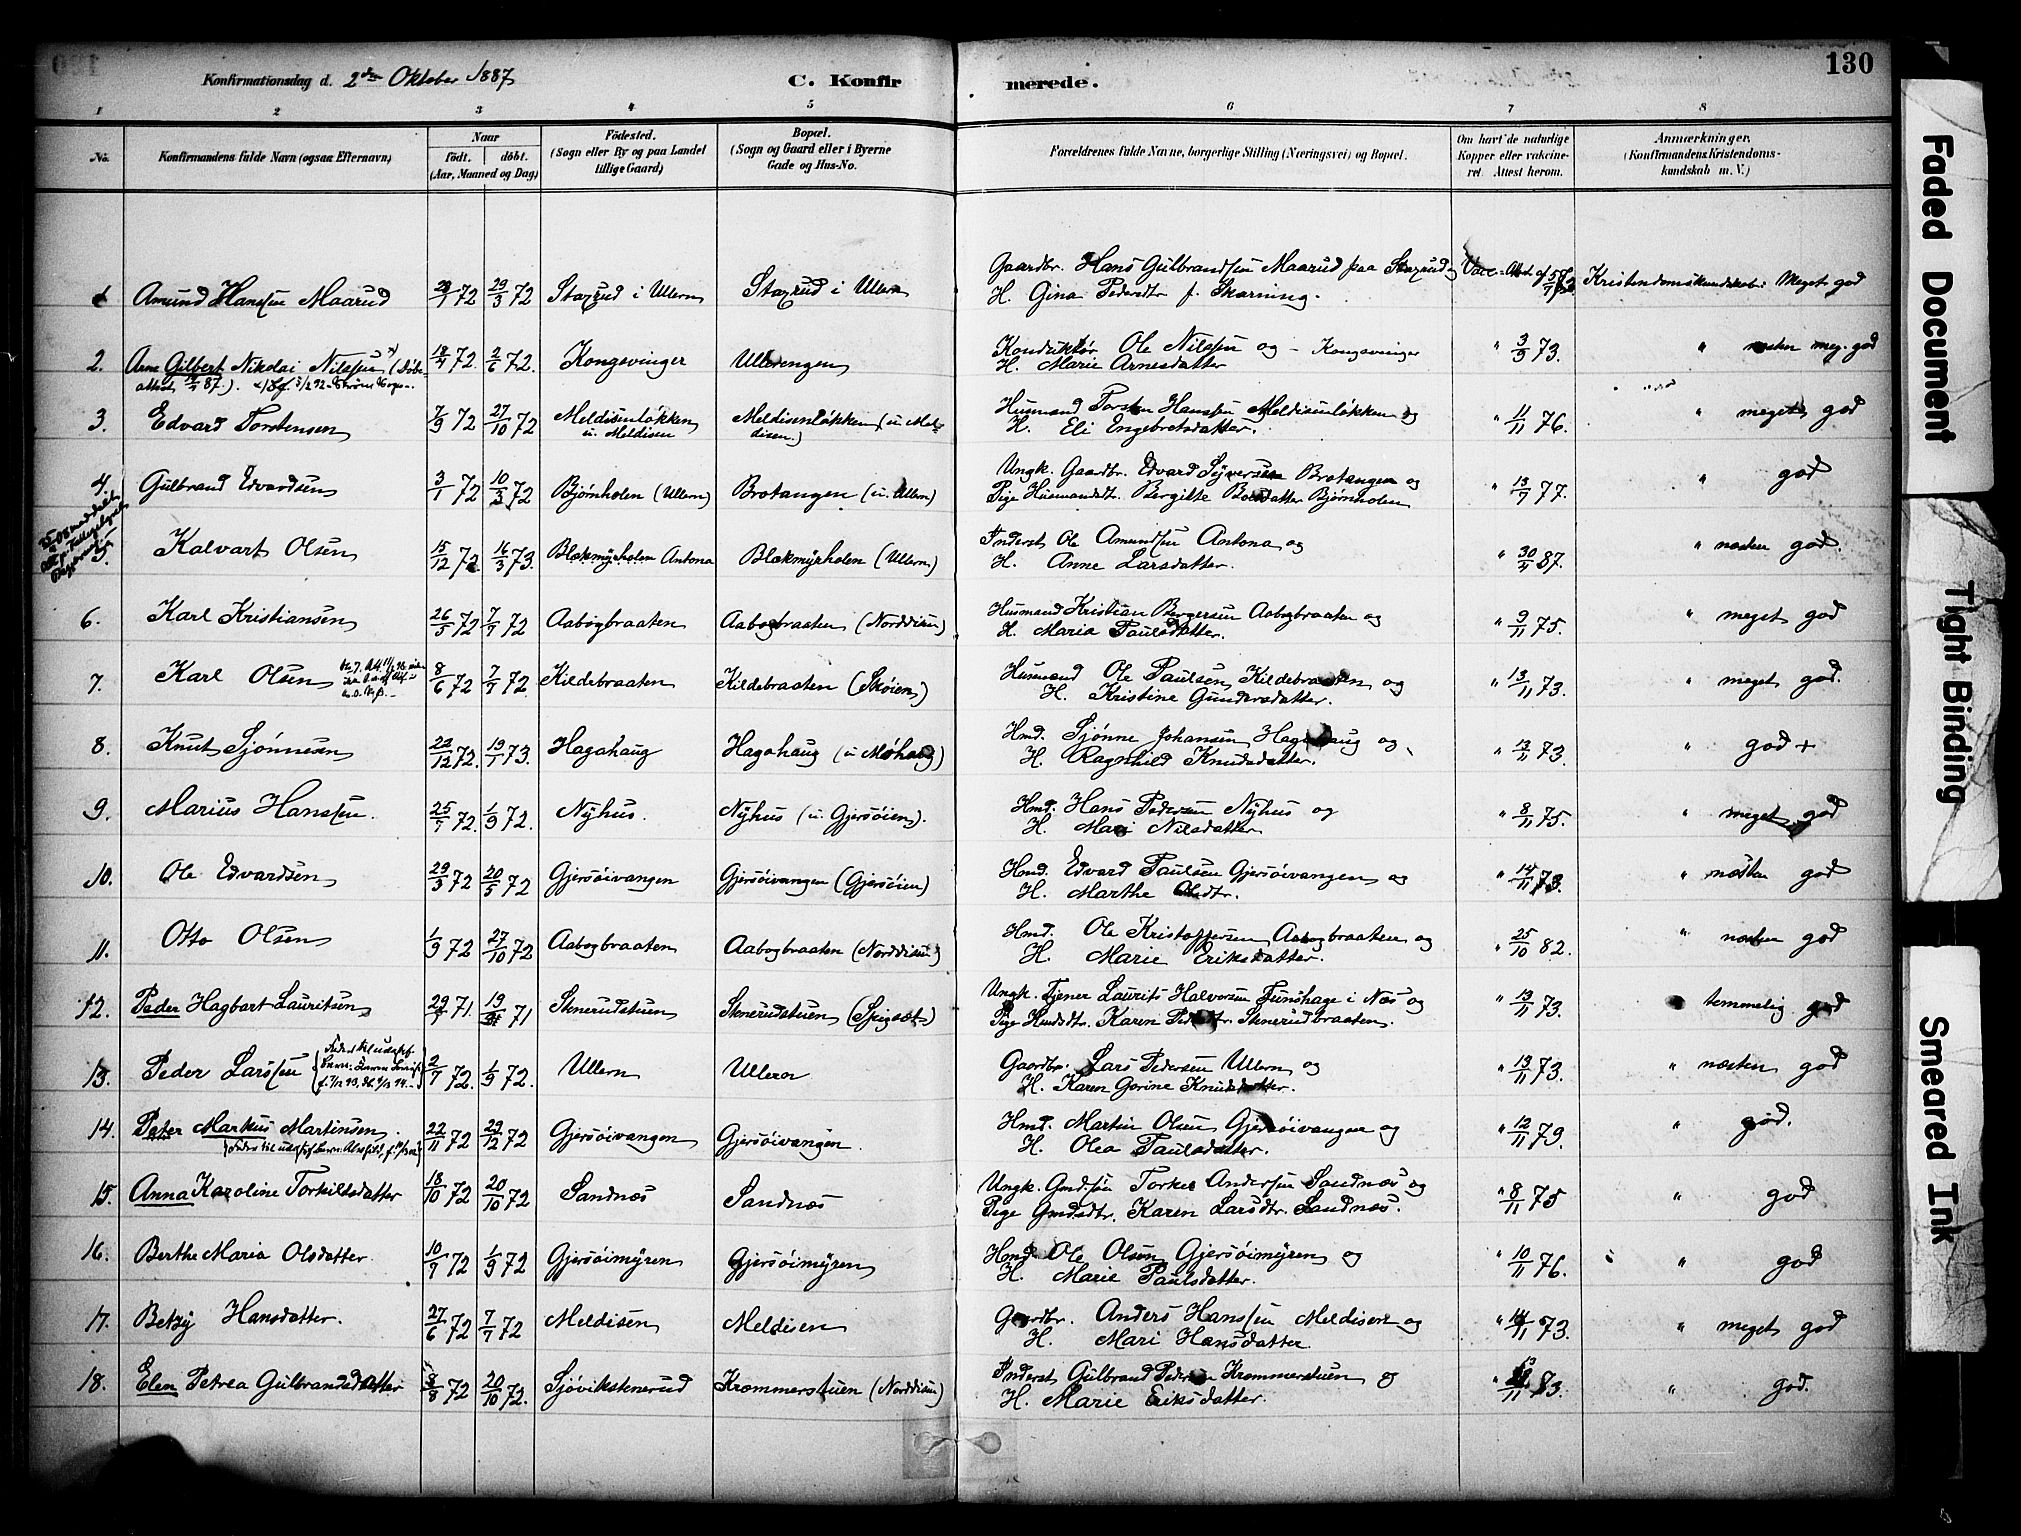 130
Konfirmationsdag d. 2den Oktober 1887
C. Konfir
merede.
1 2 3 4 5 6 7 8
No. Konfirmandens fulde Navn (ogsaa Efternavn)
Naar født. døbt. (Aar, Maaned og Dag)
Födested. (Sogn eller By og paa Landet tillige Gaard)
Bopæl. (Sogn og Gaard eller i Byerne Gade og Hus-No.
Forældrenes fulde Navne, borgerlige Stilling (Næringsvei) og Bopæl.
Om havt de naturlige Kopper eller vakcineret. Attest herom.
Anmærkninger. (Konfirmandens Kristendomskundskab m. V.)
1 Amund Hanssen Maarud 72 29/3 72 Staxrud i Ullern Staxrud i Ullern Gaardbr. Hans Gulbrandsen Maarud paa Staxrud og Kristendomskundskab: Meget god
H. Gina Pedersdtr f. Skarning.
2. Arne Gilbert Nikolai Nilssen (Døbe- 18/4 72 2/6 72. Kongsvinger Ullerengen Konduktør Ole Nilssen og - Kongsvinger " 3/9 73. " næsten meg. god
attest 87.) H. Marie Arnesdatter
3. Edvard Torstensen 7/9 72 27/10 72 Meldisenløkken u. Meldisen Meldisenløkken (u. Meldisen.) Husmand Torsten Hanssen Meldisenløkken og " 11/11 76. " meget god
H. Eli Engebretsdatter.
4. Gulbrand Edvardsen 3/1 72 10/3 72 Bjørnholen (Ullern) Brotangen (u. Ullern) Ungk. Gaardbr. Edvard Syversen Brotangen og " 13/9 77. " god
Pige Husmandsdt. Bergitte Bjørnholen
5. Kalvart Olsen 15/12 72 16/3 73. Blækmyrholen Antona Blækmyrholen (Ullern) Inderst Ole Amundsen Antona og " 87. " næsten god.
H. Anne Larsdatter.
6. Karl Kristiansen 26/5 72 7/7 72 Aabogbraaten Aabogbraaten (Norddisen) Husmand Kristian Bergersen Aabogbraaten og " 9/11 75. " meget god
H. Maria Paulsdatter.
7. Karl Olsen 8/6 72 7/7 72. Kildebraaten Kildebraaten (Skøien) Husmand Ole Paulsen Kildebraaten og " 13/11 73. " meget god.
H. Kristine Gundersdatter.
8. Knut Sjønnesen 22/12 72. 19/1 73. Hagahaug Hagahaug (u Møhaug) Hmd. Sjønne Johansen Hagahaug og " 13/11 73. " god +
H. Ragnhild Knudsdatter.
9. Marius Hanssen. 25/7 72. 1/9 72. Nyhus. Nyhus (u. Gjersøien). Hmd. Hans Pedersen Nyhus og " 8/11 75. " meget god
H. Mari Nilsdatter
10. Ole Edvardsen 29/3 72 20/5 72 Gjersøivangen Gjersøivangen (Gjersøien) Hmd. Edvard Paulsen Gjersøivangen og " 14/11 73. " næsten god
H. Marthe Olsdtr.
11. Otto Olsen 1/9 72 27/10 72 Aabogbraaten Aabogbraaten (Norddisen) Hmd. Ole Kristoffersen Aabogbraaten og " 25/10 82. " næsten god
H. Marie Eriksdatter.
12. Peder Hagbart Lauritsen 29/7 71. 71 Stenerudstuen Stenerudstuen (Spigset) Ungk. Tjener Laurits Halvorsen Funshage i Næs og " 13/11 73. temmelig god
Pige Hmdsdtr. Karen Pedersdtr. Stenerudbraaten.
13. Peder Larssen 2/7 72. 1/9 72. Ullern Ullern Gaardbr. Lars Pedersen Ullern og " 13/11 73. " næsten god
H. Karen Gorine Knudsdatter.
14. Peter Markus Martinsen. 22/11 72 29/12 72 Gjersøivangen Gjersøivangen Hmd. Martin Olsen Gjersøivangen og " 12/11 79. " god.
H. Olea Paulsdatter.
15. Anna Karoline Torkildsdatter 18/10 72 20/10 72 Sandnæs Sandnæs Ungk. Gmdsøn Torkel Andersen Sandnæs og " 8/11 75 " god
Pige Gmdsdtr. Karen Larsdtr. Sandnæs.
16. Berthe Maria Olsdatter. 10/7 72 1/9 72 Gjersøimyren Gjersøimyren Hmd. Ole Olsen Gjersøimyren og " 10/11 76. " god
H. Marie Paulsdatter.
17. Betzy Hansdatter. 27/6 72 7/7 72 Meldisen Meldisen Gaardbr. Anders Hanssen Meldisen og " 14/11 73. " meget god
H. Mari Hansdatter
18. Elen Petrea Gulbrandsdatter 8/8 72 20/10 72. Sjøvikstenerud Krommerstuen (Norddisen) Inderst Gulbrand Pedersen Krommerstuen og 83. " god.
H. Marie Eriksdatter.
Faded Document
Tight Binding
Smeared Ink